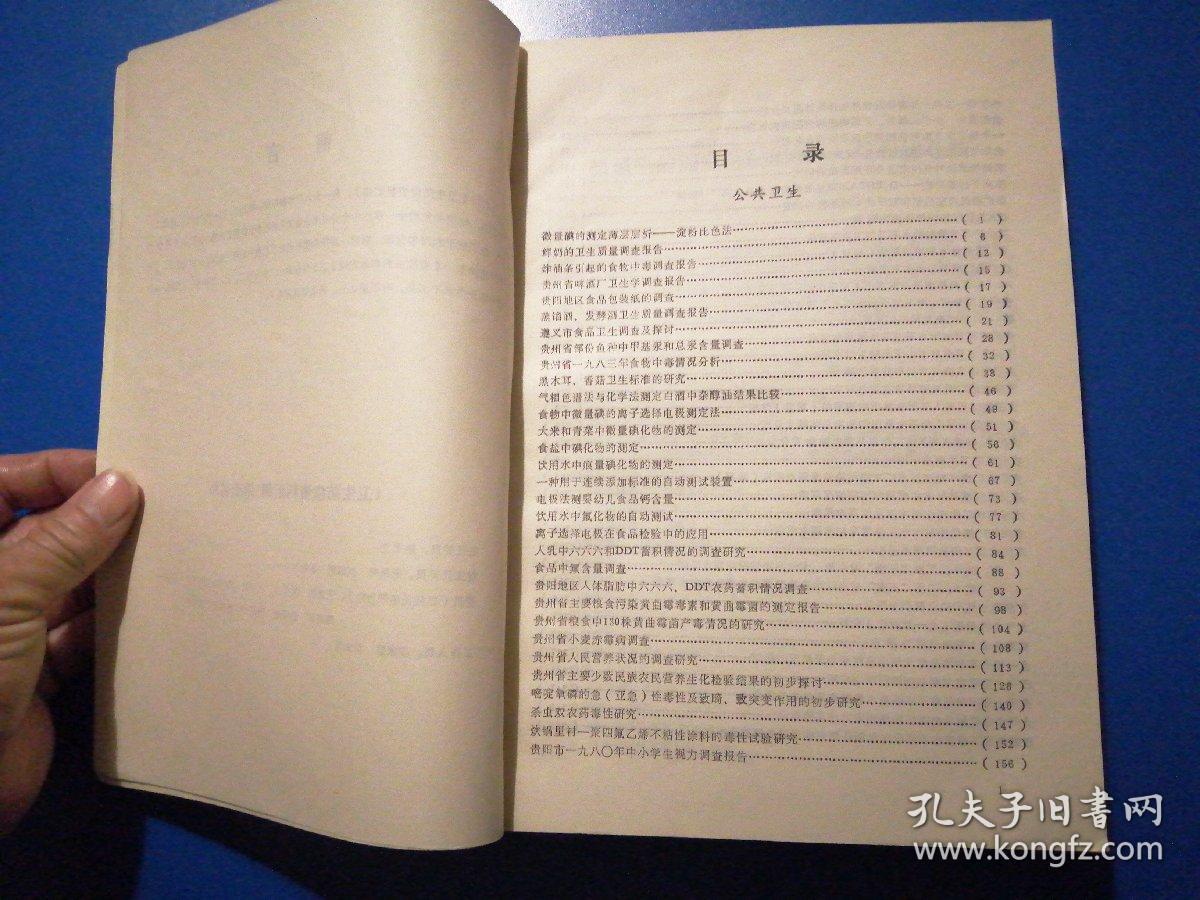 目 录
公共卫生
微量碘的测定薄层层析——淀粉比色法……( 1 )
鲜奶的卫生质量调查报告……( 6 )
炸油条引起的食物中毒调查报告……( 12 )
贵州省啤酒厂卫生学调查报告……( 15 )
贵阳地区食品包装纸的调查……( 17 )
蒸馏酒、发酵酒卫生质量调查报告……( 19 )
遵义市食品卫生调查及探讨……( 21 )
贵州省部份鱼种中甲基汞和总汞含量调查……( 28 )
贵州省一九八三年食物中毒情况分析……( 32 )
黑木耳、香菇卫生标准的研究……( 38 )
气相色谱法与化学法测定白酒中杂醇油结果比较……( 46 )
食物中微量碘的离子选择电极测定法……( 49 )
大米和青菜中微量碘化物的测定……( 51 )
食盐中碘化物的测定……( 56 )
饮用水中痕量碘化物的测定……( 61 )
一种用于连续添加标准的自动测试装置……( 67 )
电极法测婴幼儿食品钙含量……( 73 )
饮用水中氟化物的自动测试……( 77 )
离子选择电极在食品检验中的应用……( 81 )
人乳中六六六和DDT蓄积情况的调查研究……( 84 )
食品中氟含量调查……( 88 )
贵阳地区人体脂肪中六六六、DDT农药蓄积情况调查……( 93 )
贵州省主要粮食污染黄曲霉毒素和黄曲霉菌的测定报告……( 98 )
贵州省粮食中130株黄曲霉菌产毒情况的研究……( 104 )
贵州省小麦赤霉病调查……( 108 )
贵州省人民营养状况的调查研究……( 113 )
贵州省主要少数民族农民营养生化检验结果的初步探讨……( 126 )
嘧啶氧磷的急（亚急）性毒性及致畸、致突变作用的初步研究……( 140 )
杀虫双农药毒性研究……( 147 )
炊锅里衬—聚四氟乙烯不粘性涂料的毒性试验研究……( 152 )
贵阳市一九八〇年中小学生视力调查报告……( 156 )
1
孔夫子旧书网
www.kongfz.com